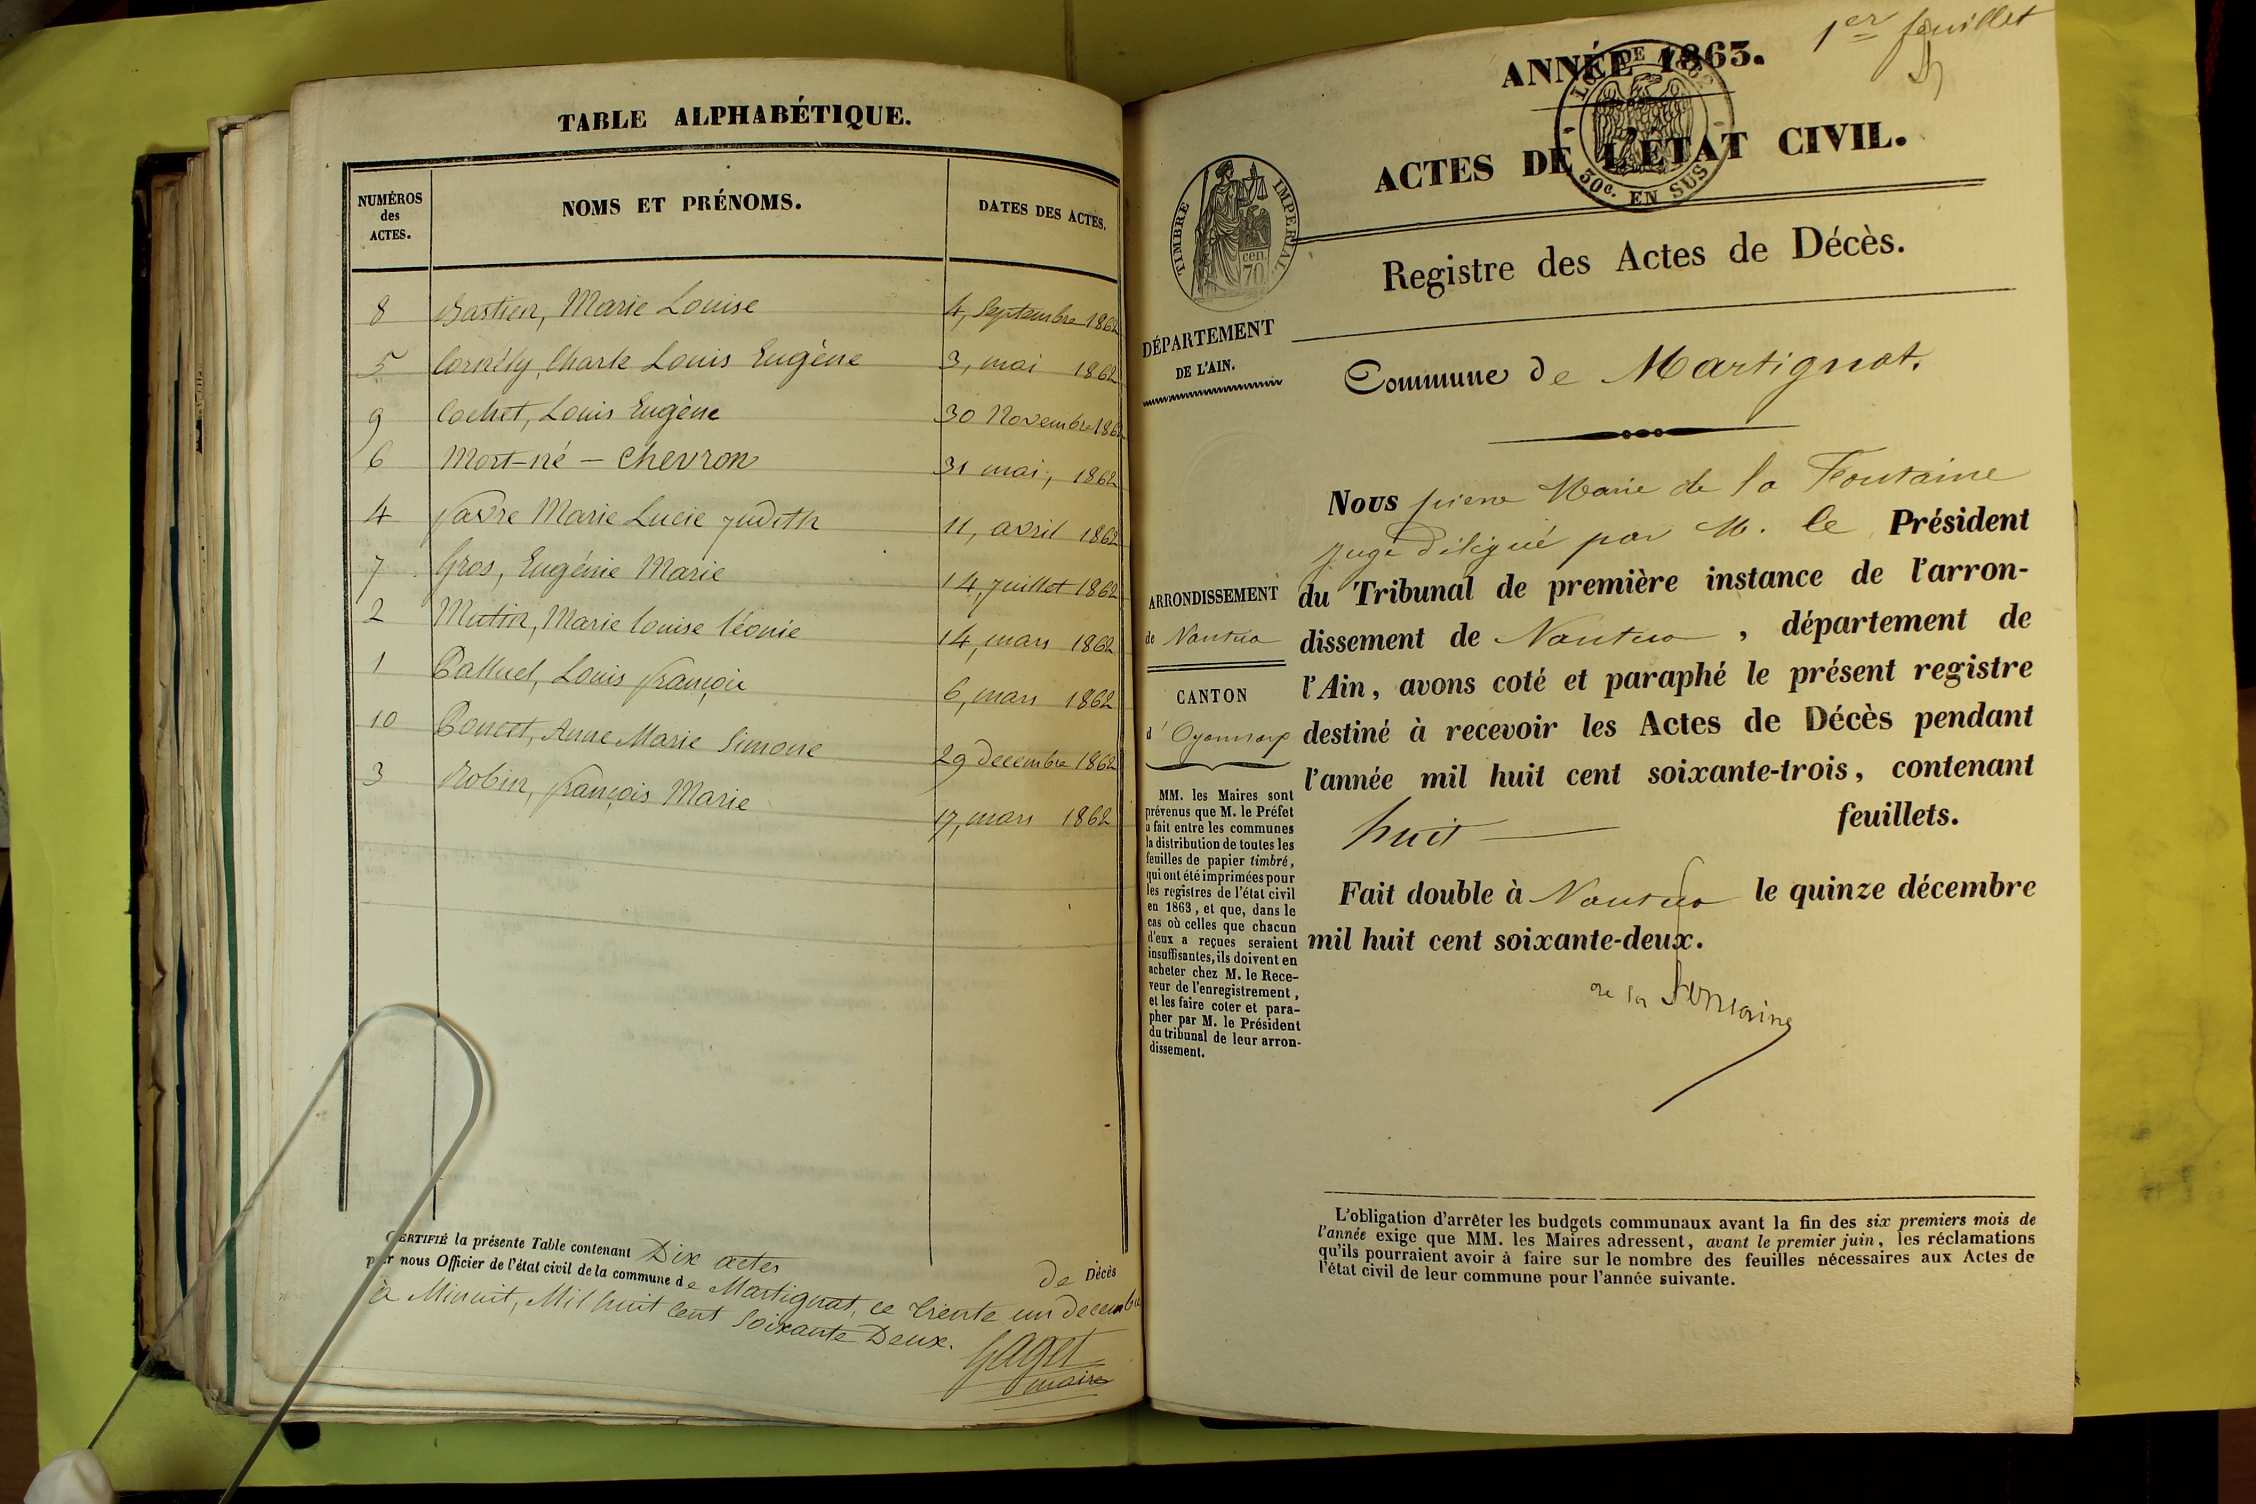 TABLE ALPHABÉTIQUE.
NUMÉROS des ACTES. NOMS ET PRÉNOMS. DATES DES ACTES.
8 Bastien, Marie Louise 4, Septembre 1862
5 Cornély, Charle Louis Eugène 3, mai 1862
9 Cochet, Louis Eugène 30 Novembre 1862
6 Mort-né - Chevron 31 mai, 1862
4 favre Marie Lucie Judith 11, avril 1862
7 Gros, Eugénie Marie 14, Juillet 1862
2 Mutin, Marie louise léonie 14, mars 1862
1 Louis françois 6, mars 1862
10 Poncet, Anne Marie Simone 29 decembre 1862
3 Robin, françois Marie 17, mars 1862
CERTIFIÉ la présente Table contenant Dix actes de Décès
par nous Officier de l'état civil de la commune de Martignat, ce trente un decembre
à Minuit, Mil huit Cent Soixante Deux.
Gaget
maire
1er feuillet
ANNÉE 1863.
LOI DE 1862
30c. EN SUS
ACTES DE L'ÉTAT CIVIL.
TIMBRE IMPERIAL
cen. 70
Registre des Actes de Décès.
DÉPARTEMENT
DE L'AIN.
Commune de Martignat.
Nous pierre Marie de la Fontaine
juge délégué par M. le Président
du Tribunal de première instance de l'arron-
dissement de Nantua, département de
l'Ain, avons coté et paraphé le présent registre
destiné à recevoir les Actes de Décès pendant
l'année mil huit cent soixante-trois, contenant
huit feuillets.
Fait double à Nantua le quinze décembre
mil huit cent soixante-deux.
de la Fontaine
ARRONDISSEMENT
de Nantua
CANTON
d'Oyonnax
MM. les Maires sont
prévenus que M. le Préfet
a fait entre les communes
la distribution de toutes les
feuilles de papier timbré,
qui ont été imprimées pour
les registres de l'état civil
en 1863, et que, dans le
cas où celles que chacun
d'eux a reçues seraient
insuffisantes, ils doivent en
acheter chez M. le Rece-
veur de l'enregistrement,
et les faire coter et para-
pher par M. le Président
du tribunal de leur arron-
dissement.
L'obligation d'arrêter les budgets communaux avant la fin des six premiers mois de
l'année exige que MM. les Maires adressent, avant le premier juin, les réclamations
qu'ils pourraient avoir à faire sur le nombre des feuilles nécessaires aux Actes de
l'état civil de leur commune pour l'année suivante.